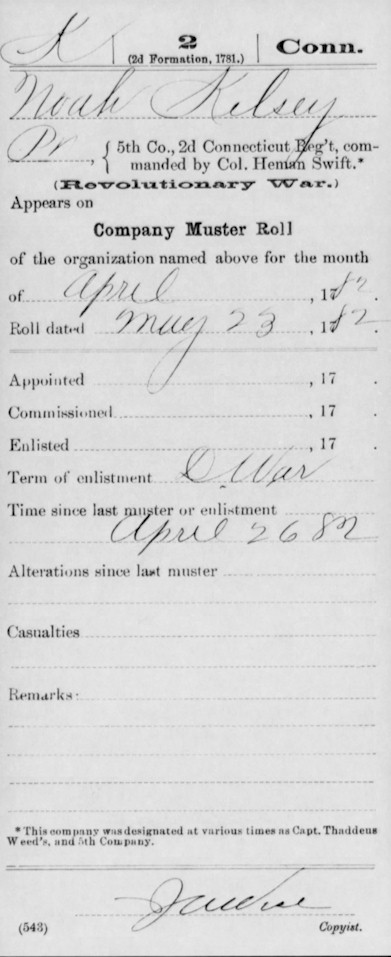 K | 2 | Conn.
(2d Formation, 1781.)
Noah Kelsey
Pr, { 5th Co., 2d Connecticut Reg't, com-
manded by Col. Heman Swift.*
(Revolutionary War.)
Appears on
Company Muster Roll
of the organization named above for the month
of April, 1782.
Roll dated May 23, 1782.
Appointed , 17 .
Commissioned , 17 .
Enlisted , 17 .
Term of enlistment D. War
Time since last muster or enlistment
April 26 82
Alterations since last muster
Casualties
Remarks:
* This company was designated at various times as Capt. Thaddeus
Weed's, and 5th Company.
(543) Copyist.